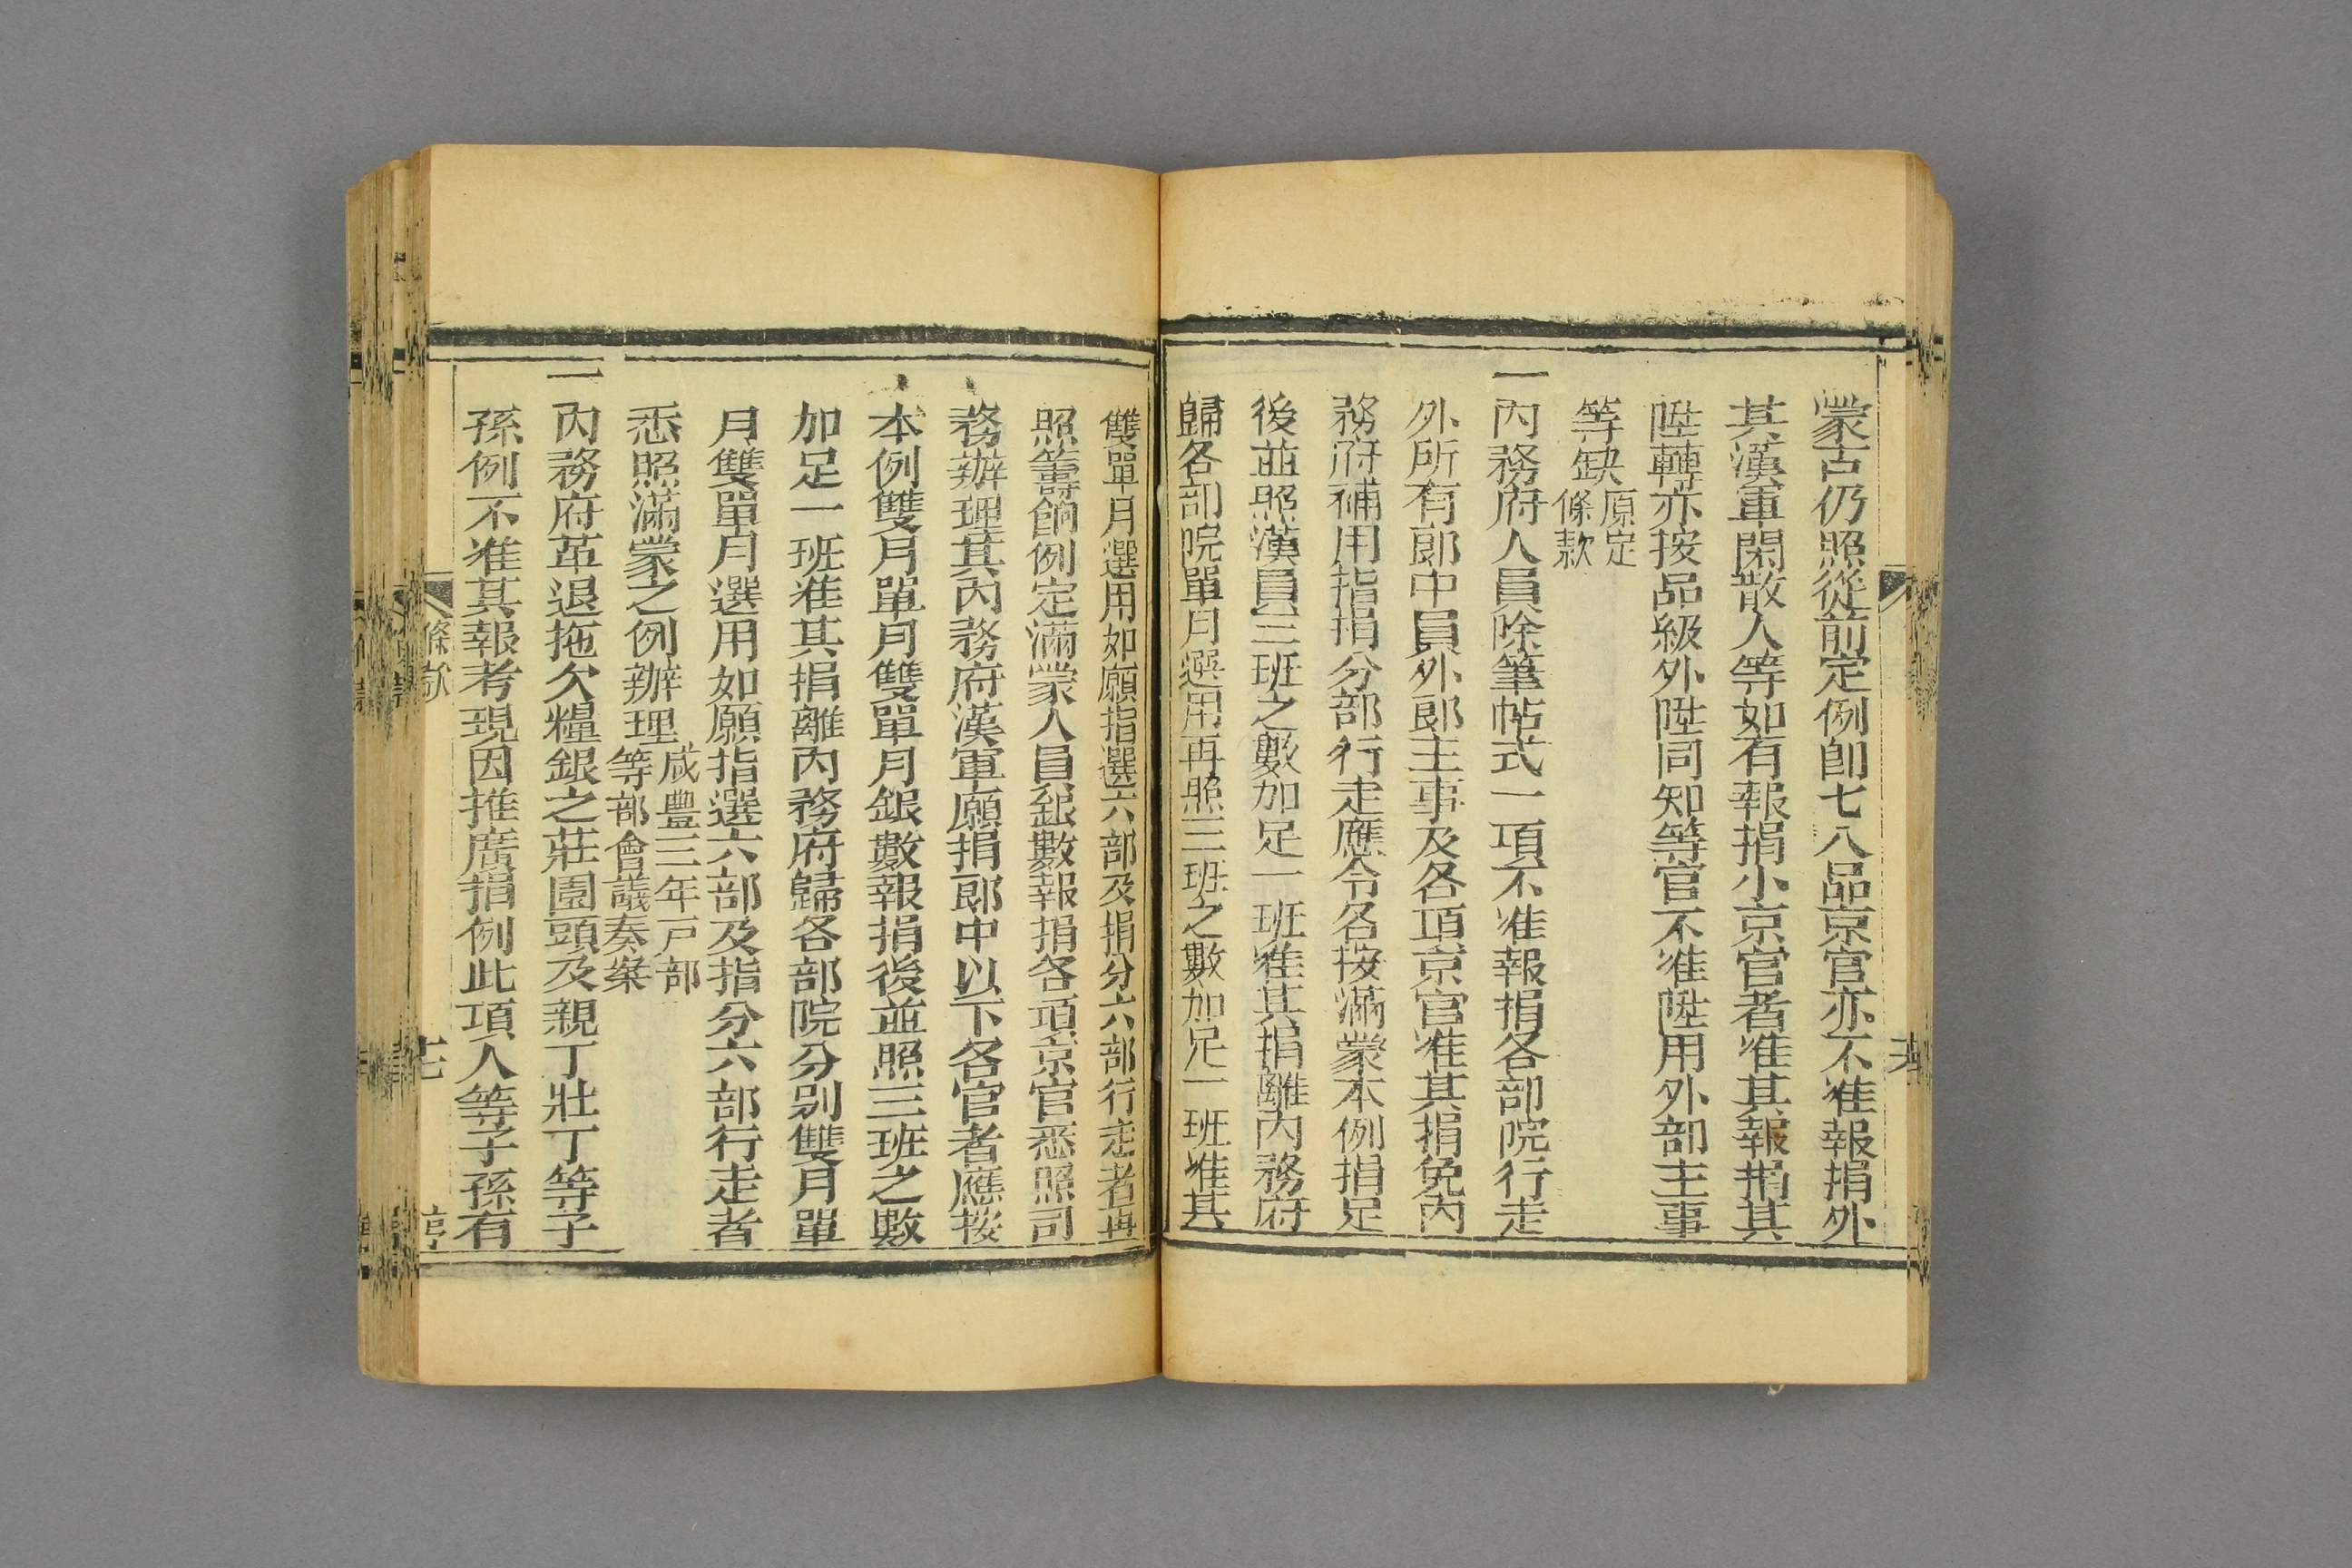 蒙古仍照從前定例卽七八品京官亦不准報捐外
其漢軍閑散人等如有報捐小京官者准其報捐其
陞轉亦按品級外陞同知等官不准陞用外部主事
等缺原定
條款
一內務府人員除筆帖式一項不准報捐各部院行走
外所有郎中員外郎主事及各項京官准其捐免內
務府補用指捐分部行走應令各按滿蒙本例捐足
後並照漢員三班之數加足一班准其捐離內務府
歸各部院單月選用再照三班之數加足一班准其
雙單月選用如願指選六部及捐分六部行走者再
照籌餉例定滿蒙人員銀數報捐各項京官悉照司
務辦理其內務府漢軍願捐郎中以下各官者應按
本例雙月單月雙單月銀數報捐後並照三班之數
加足一班准其捐離內務府歸各部院分別雙月單
月雙單月選用如願指選六部及指分六部行走者
悉照滿蒙之例辦理咸豐三年戸部
等部會議奏案
一內務府革退拖欠糧銀之莊園頭及親丁壯丁等子
孫例不准其報考現因推廣捐例此項人等子孫有
條款